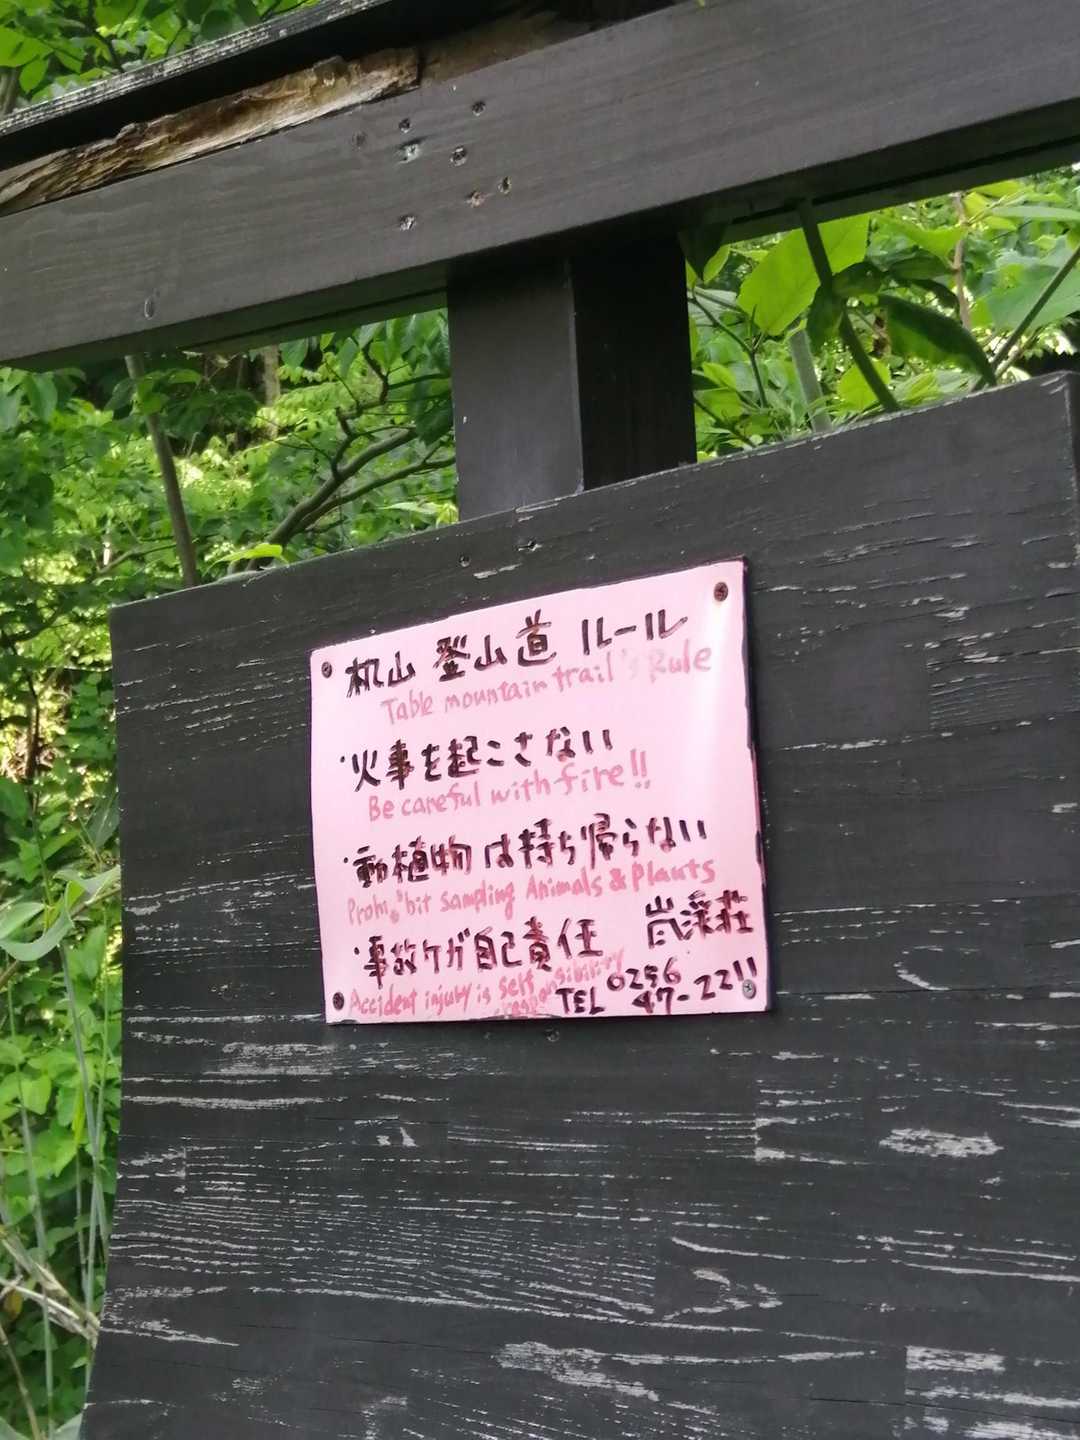 机山 登山道 ルール
Table mountain trail's Rule
・火事を起こさない
Be careful with fire!!
・動植物は持ち帰らない
Prohibit sampling Animals & Plants
・事故ケガ自己責任
Accident injury is self responsibility
嵐渓荘
TEL 0256
47-2211